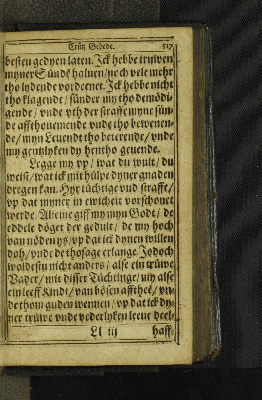 Crütz Gebede. 517
besten gedyen laten. Jck hebbe truwen
myner Sünde haluen / noch vele mehr
tho lydende vordeenet. Jck hebbe nicht
tho klagende / sünder my tho demödi-
gende / vnde vth der straffe myne sün-
de affthonemende vnde tho bewenen-
de / myn Leuendt tho beterende / vnde
my gentzlyken dy hentho geuende.
Legge my vp / wat du wult / du
weist / wat ick mit hülpe dyner gnaden
dregen kan. Hyr tüchtige vnd straffe /
vp dat myner in ewicheit vorschonet
werde. Alleine giff my myn Godt / de
eddele döget der gedult / de my hoch
van nöden ys / vp dat ick dynen willen
doh / vnde de thosage erlange. Jodoch
woldestu nicht anders / alse ein trüwe
Vader / mit disser Tüchtinge / my alse
ein leeff Kindt / van bösen affthee / vn-
de thom guden wennen / vp dat ick dy-
ner trüwe vnde vederlyken leeue deel-
Ll iij haff-